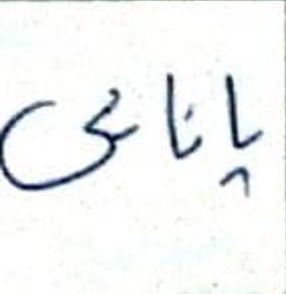 پانائی